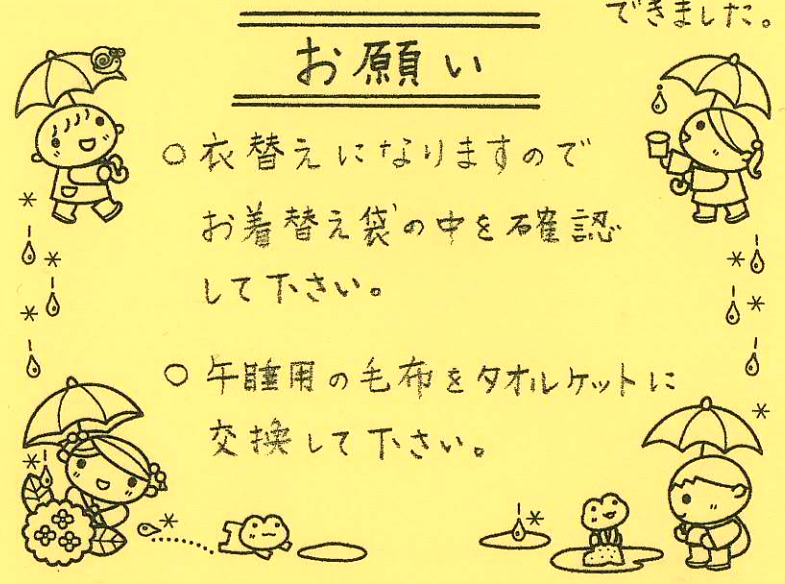 できました。
お願い
○衣替えになりますので
お着替え袋の中を確認
して下さい。
○午睡用の毛布をタオルケットに
交換して下さい。